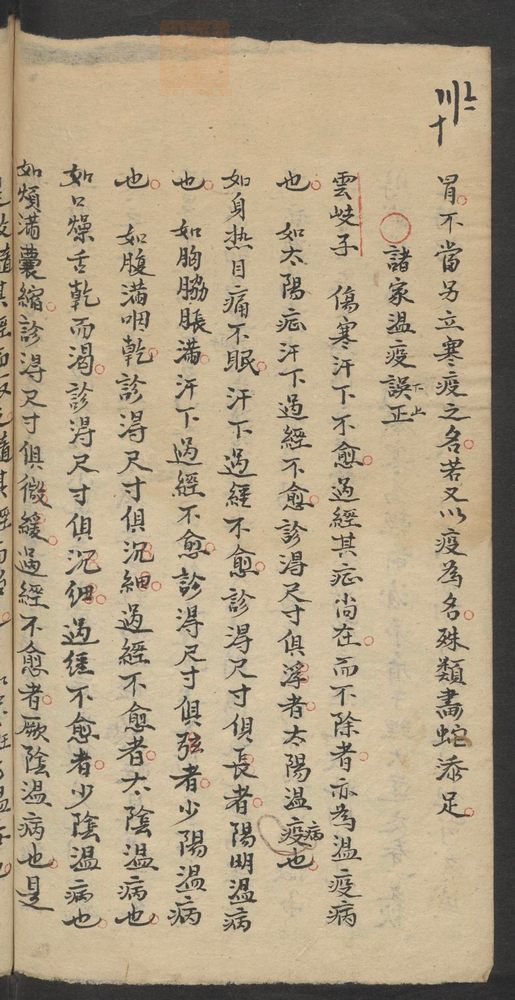 冒不當另立寒疫之名若又以疫為名殊類畵蛇添足
諸家溫疫誤正
雲岐子 傷寒汗下不愈過經其症尚在而不除者亦為溫疫病
也 如太陽症汗下過經不愈診得尺寸俱浮者太陽溫疫病也
如身热目痛不眠汗下過經不愈診得尺寸俱長者陽明溫病
也 如胸脇脹滿汗下過經不愈診得尺寸俱弦者少陽溫病
也 如腹滿咽乾診得尺寸俱沉細過經不愈者太陰溫病也
如口燥舌乾而渴診得尺寸俱沉細過經不愈者少陰溫病也
如煩滿囊縮診得尺寸俱微緩過經不愈者厥陰溫病也是